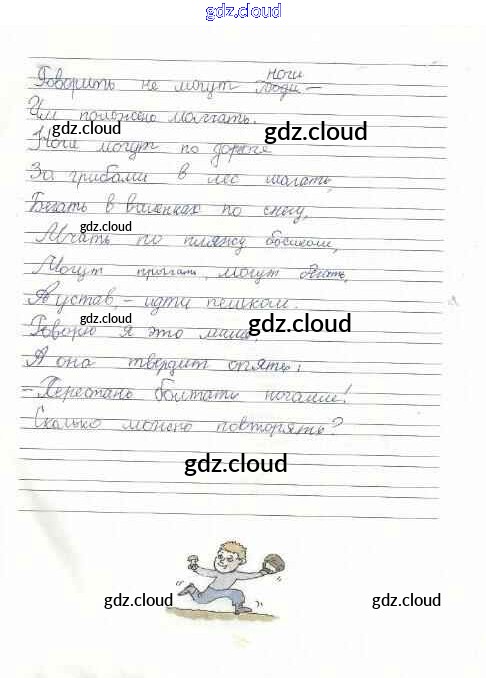 gdz.cloud
ноги
Говорить не могут люди –
Им положено молчать.
gdz.cloud
gdz.cloud
Ноги могут по дороге
За грибами в лес шагать,
Бегать в валенках по снегу,
gdz.cloud
Мчать по пляжу босиком,
Могут прыгать, могут бегать,
А устав, – идти пешком.
Говорю я это маме,
gdz.cloud
gdz.cloud
А она твердит опять:
– Перестань болтать ногами!
Сколько можно повторять?
gdz.cloud
gdz.cloud
gdz.cloud